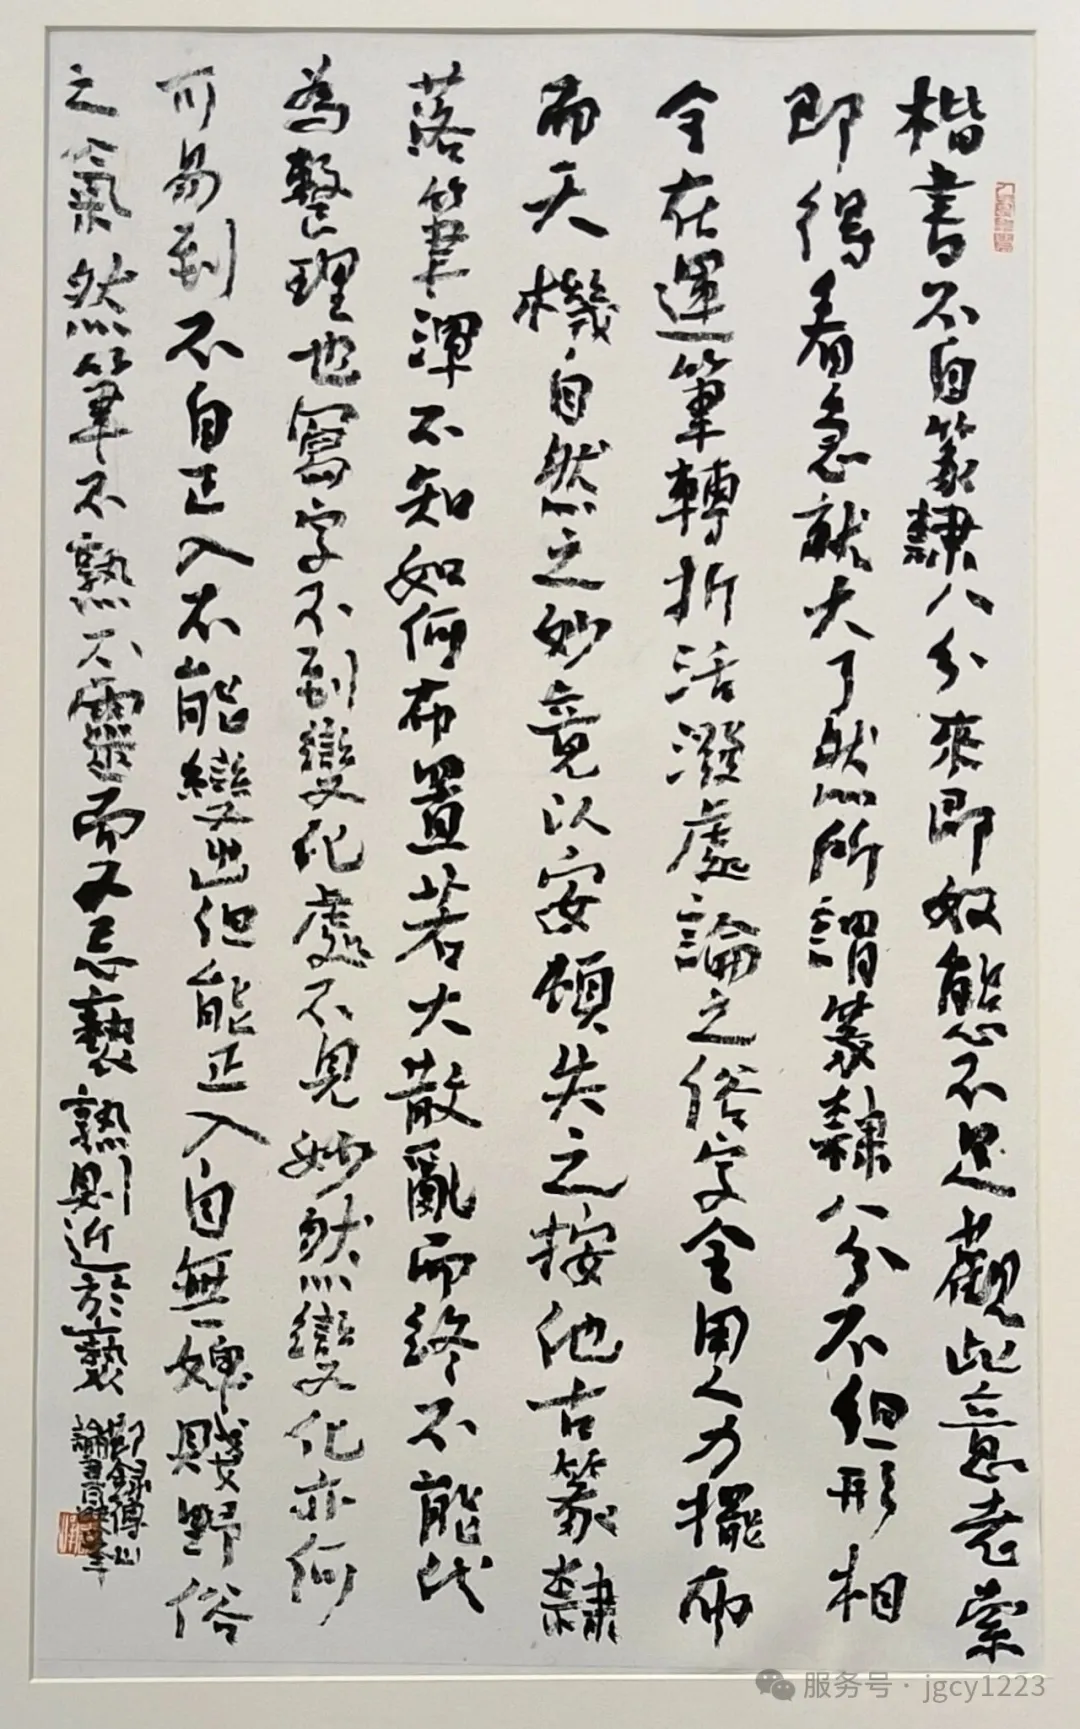 楷書不自篆隸八分來即奴態不足觀此意老索
即得看急就大了然所謂篆隸八分不但形相
全在運筆轉折活潑處論之俗字全用人力擺布
而天機自然之妙竟以安頓失之按他古篆隸
落筆渾不知如何布置若大散亂而終不能代
為整理也寫字不到變化處不見妙然變化亦何
可易到不自正入不能變出但能正入自無婢賤野俗
之氣然筆不熟不靈而又忌褻熟則近於褻
節錄傅山
論書
服务号·jgcy1223